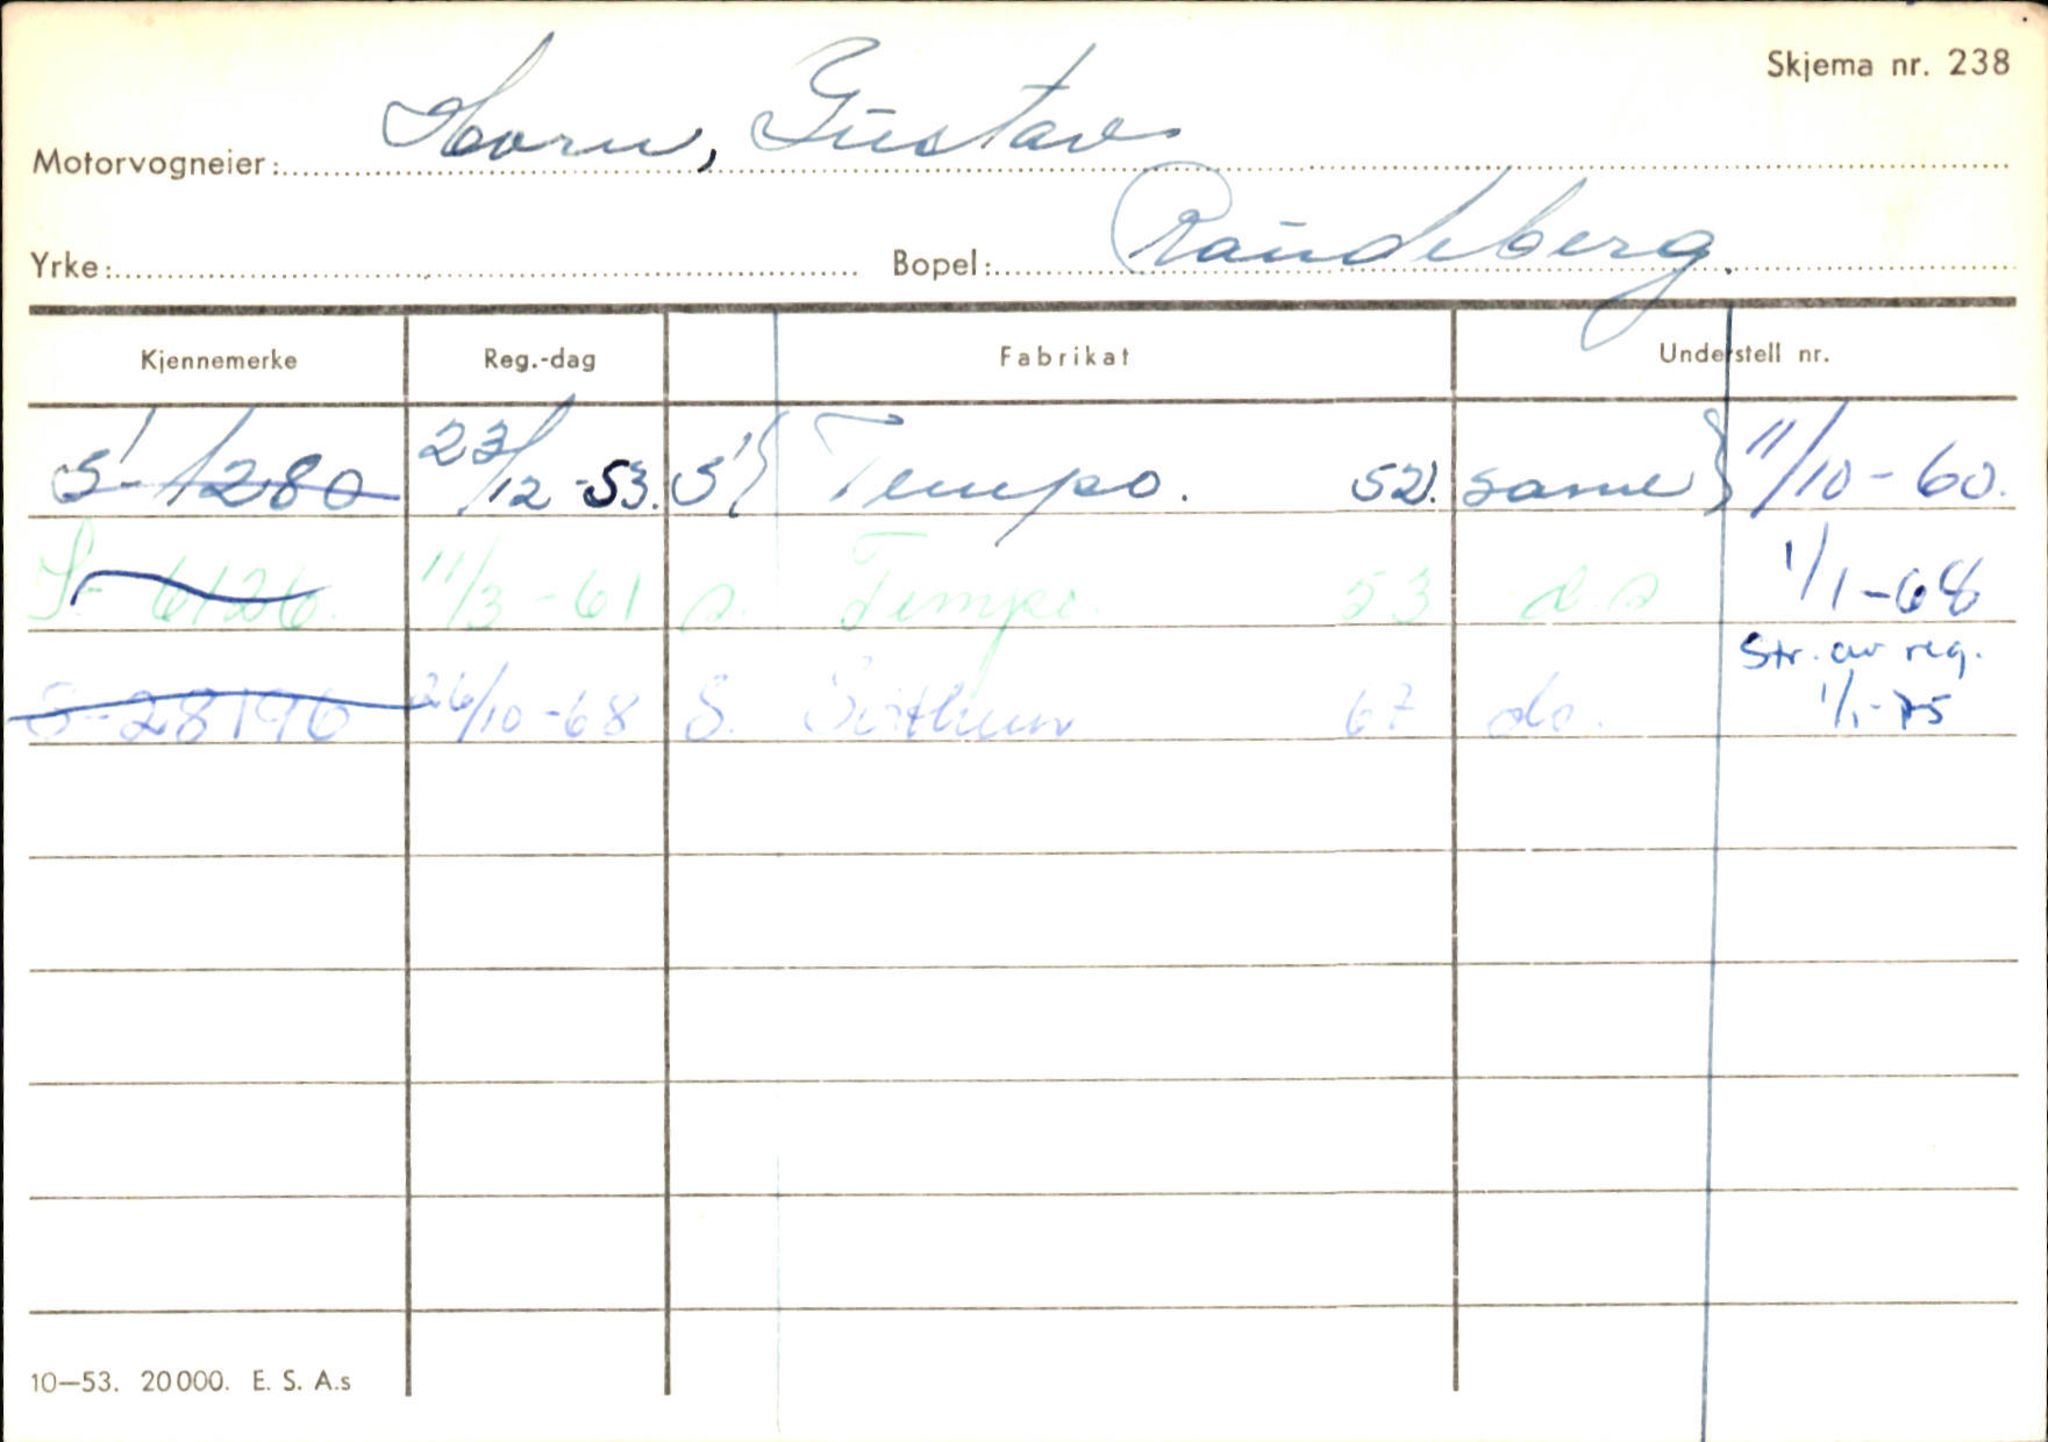 Skjema nr. 238
Motorvogneier: Horn, Gustav
Yrke: Bopel: Raudeberg.
Kjennemerke Reg.-dag Fabrikat Understell nr.
S-1280 23/12-53. S Tempo. 52. same 11/10-60.
S-6126. 11/3-61 s. Tempo. 53 d.s 1/1-68
Str. av reg.
S-28196 26/10-68 S. 67 do. 1/1-75
10—53. 20000. E. S. A.s